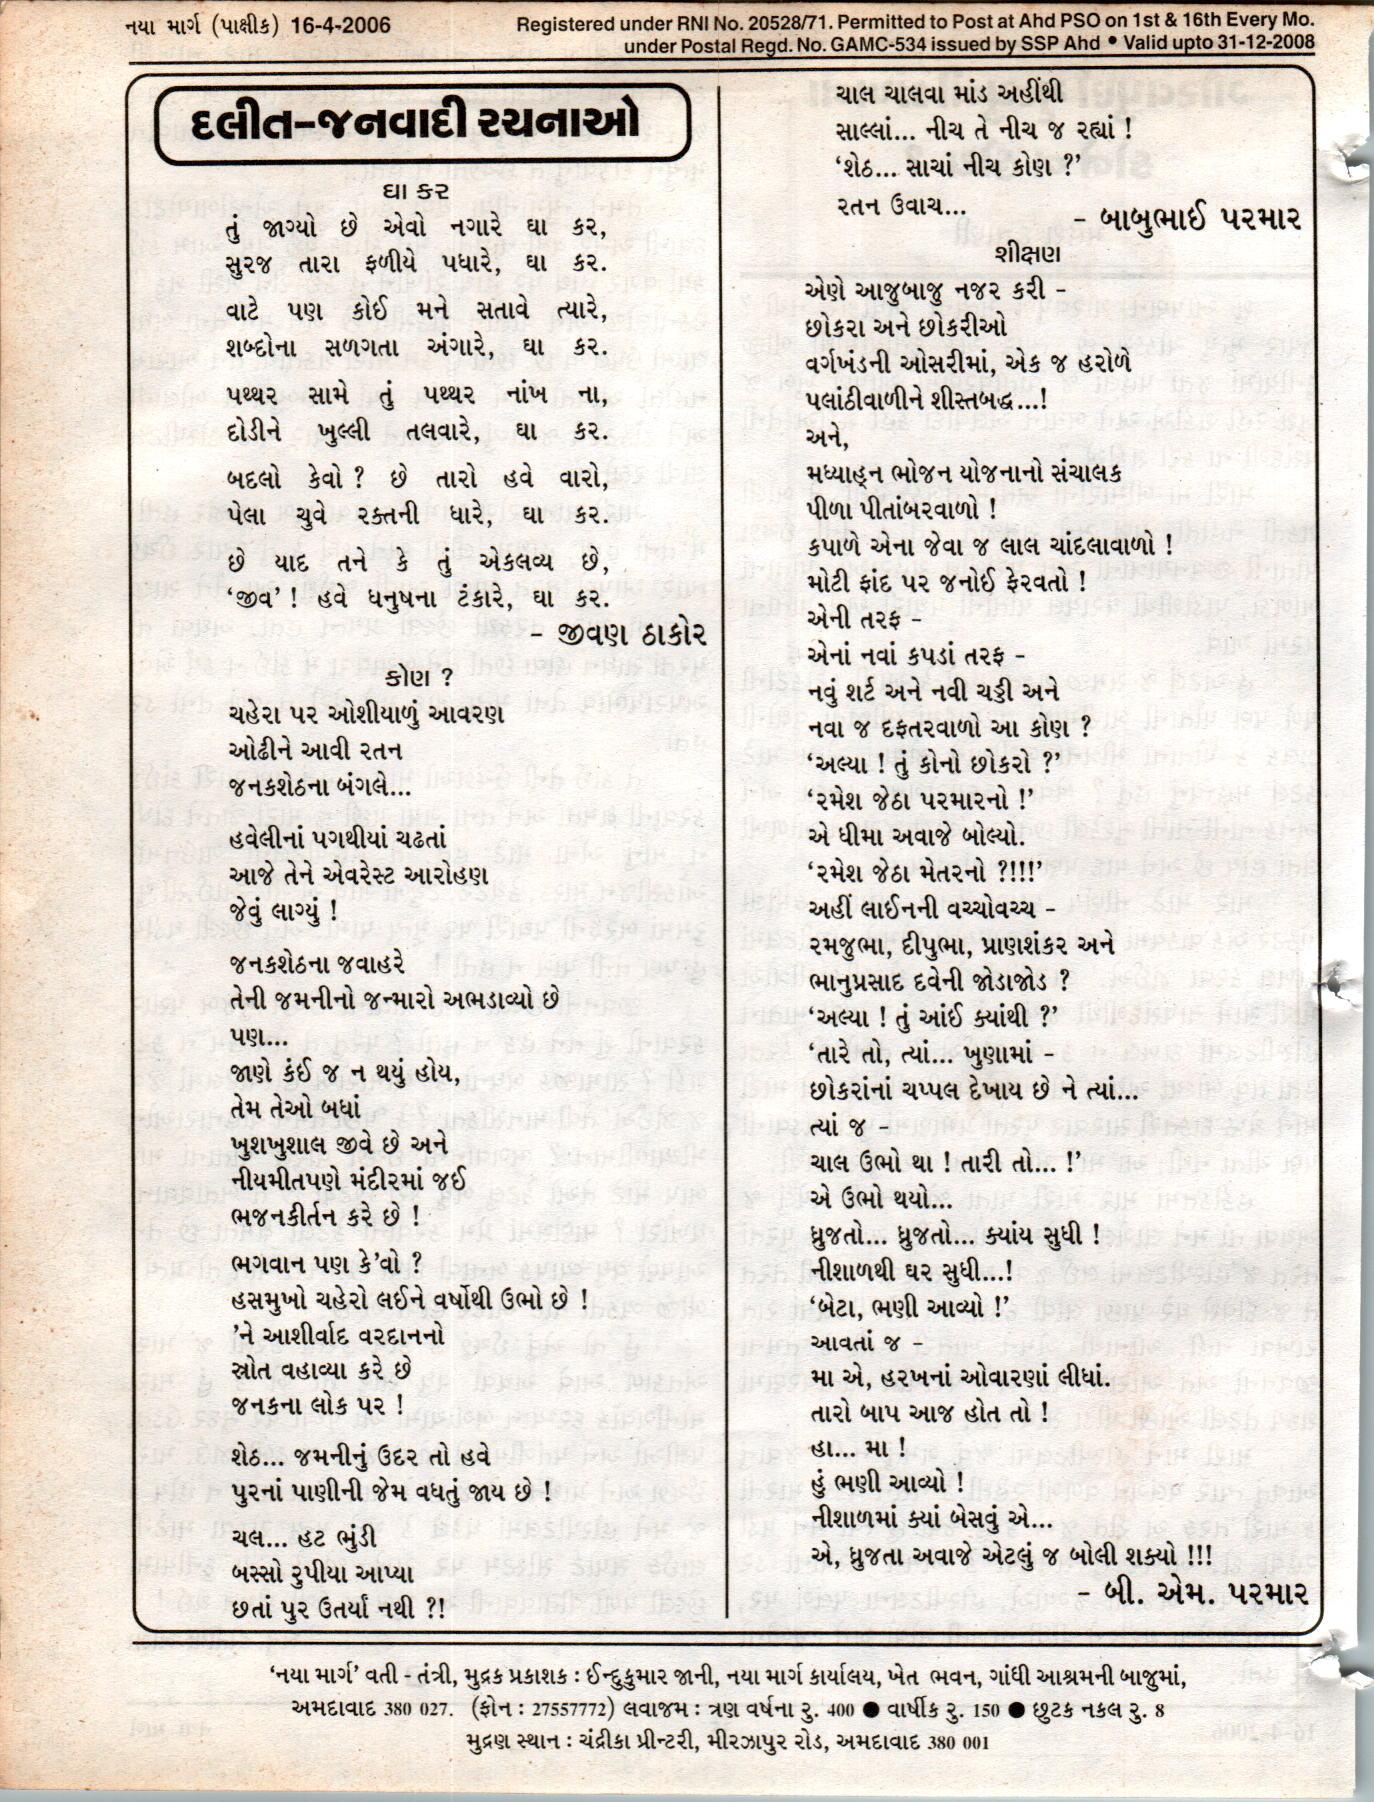 નયા માર્ગ (પાક્ષીક) 16-4-2006
Registered under RNI No. 20528/71. Permitted to Post at Ahd PSO on 1st & 16th Every Mo.
under Postal Regd. No. GAMC-534 issued by SSP Ahd • Valid upto 31-12-2008
દલીત-જનવાદી રચનાઓ
ઘા કર
તું જાગ્યો છે એવો નગારે ઘા કર,
સુરજ તારા ફળીયે પધારે, ઘા કર.
વાટે પણ કોઈ મને સતાવે ત્યારે,
શબ્દોના સળગતા અંગારે, ઘા કર.
પથ્થર સામે તું પથ્થર નાંખ ના,
દોડીને ખુલ્લી તલવારે, ઘા કર.
બદલો કેવો ? છે તારો હવે વારો,
પેલા ચુવે રક્તની ધારે, ઘા કર.
છે યાદ તને કે તું એકલવ્ય છે,
‘જીવ’ ! હવે ધનુષના ટંકારે, ઘા કર.
- જીવણ ઠાકોર
કોણ ?
ચહેરા પર ઓશીયાળું આવરણ
ઓઢીને આવી રતન
જનકશેઠના બંગલે...
હવેલીનાં પગથીયાં ચઢતાં
આજે તેને એવરેસ્ટ આરોહણ
જેવું લાગ્યું !
જનકશેઠના જવાહરે
તેની જમનીનો જન્મારો અભડાવ્યો છે
પણ...
જાણે કંઈ જ ન થયું હોય,
તેમ તેઓ બધાં
ખુશખુશાલ જીવે છે અને
નીયમીતપણે મંદીરમાં જઈ
ભજનકીર્તન કરે છે !
ભગવાન પણ કે’વો ?
હસમુખો ચહેરો લઈને વર્ષોથી ઉભો છે !
’ને આશીર્વાદ વરદાનનો
સ્રોત વહાવ્યા કરે છે
જનકના લોક પર !
શેઠ... જમનીનું ઉદર તો હવે
પુરનાં પાણીની જેમ વધતું જાય છે !
ચલ... હટ ભુંડી
બસ્સો રુપીયા આપ્યા
છતાં પુર ઉતર્યાં નથી ?!
ચાલ ચાલવા માંડ અહીંથી
સાલ્લાં... નીચ તે નીચ જ રહ્યાં !
‘શેઠ... સાચાં નીચ કોણ ?’
રતન ઉવાચ...
- બાબુભાઈ પરમાર
શીક્ષણ
એણે આજુબાજુ નજર કરી -
છોકરા અને છોકરીઓ
વર્ગખંડની ઓસરીમાં, એક જ હરોળે
પલાંઠીવાળીને શીસ્તબદ્ધ...!
અને,
મધ્યાહ્ન ભોજન યોજનાનો સંચાલક
પીળા પીતાંબરવાળો !
કપાળે એના જેવા જ લાલ ચાંદલાવાળો !
મોટી ફાંદ પર જનોઈ ફેરવતો !
એની તરફ -
એનાં નવાં કપડાં તરફ -
નવું શર્ટ અને નવી ચડ્ડી અને
નવા જ દફતરવાળો આ કોણ ?
‘અલ્યા ! તું કોનો છોકરો ?’
‘રમેશ જેઠા પરમારનો !’
એ ધીમા અવાજે બોલ્યો.
‘રમેશ જેઠા મેતરનો ?!!!’
અહીં લાઈનની વચ્ચોવચ્ચ -
રમજુભા, દીપુભા, પ્રાણશંકર અને
ભાનુપ્રસાદ દવેની જોડાજોડ ?
‘અલ્યા ! તું આંઈ ક્યાંથી ?’
‘તારે તો, ત્યાં... ખુણામાં -
છોકરાંનાં ચપ્પલ દેખાય છે ને ત્યાં...
ત્યાં જ -
ચાલ ઉભો થા ! તારી તો... !’
એ ઉભો થયો...
ધ્રુજતો... ધ્રુજતો... ક્યાંય સુધી !
નીશાળથી ઘર સુધી...!
‘બેટા, ભણી આવ્યો !’
આવતાં જ -
મા એ, હરખનાં ઓવારણાં લીધાં.
તારો બાપ આજ હોત તો !
હા... મા !
હું ભણી આવ્યો !
નીશાળમાં ક્યાં બેસવું એ...
એ, ધ્રુજતા અવાજે એટલું જ બોલી શક્યો !!!
- બી. એમ. પરમાર
‘નયા માર્ગ’ વતી - તંત્રી, મુદ્રક પ્રકાશક : ઈન્દુકુમાર જાની, નયા માર્ગ કાર્યાલય, ખેત ભવન, ગાંધી આશ્રમની બાજુમાં,
અમદાવાદ 380 027. (ફોન : 27557772) લવાજમ : ત્રણ વર્ષના રુ. 400 ● વાર્ષીક રુ. 150 ● છુટક નકલ રુ. 8
મુદ્રણ સ્થાન : ચંદ્રીકા પ્રીન્ટરી, મીરઝાપુર રોડ, અમદાવાદ 380 001